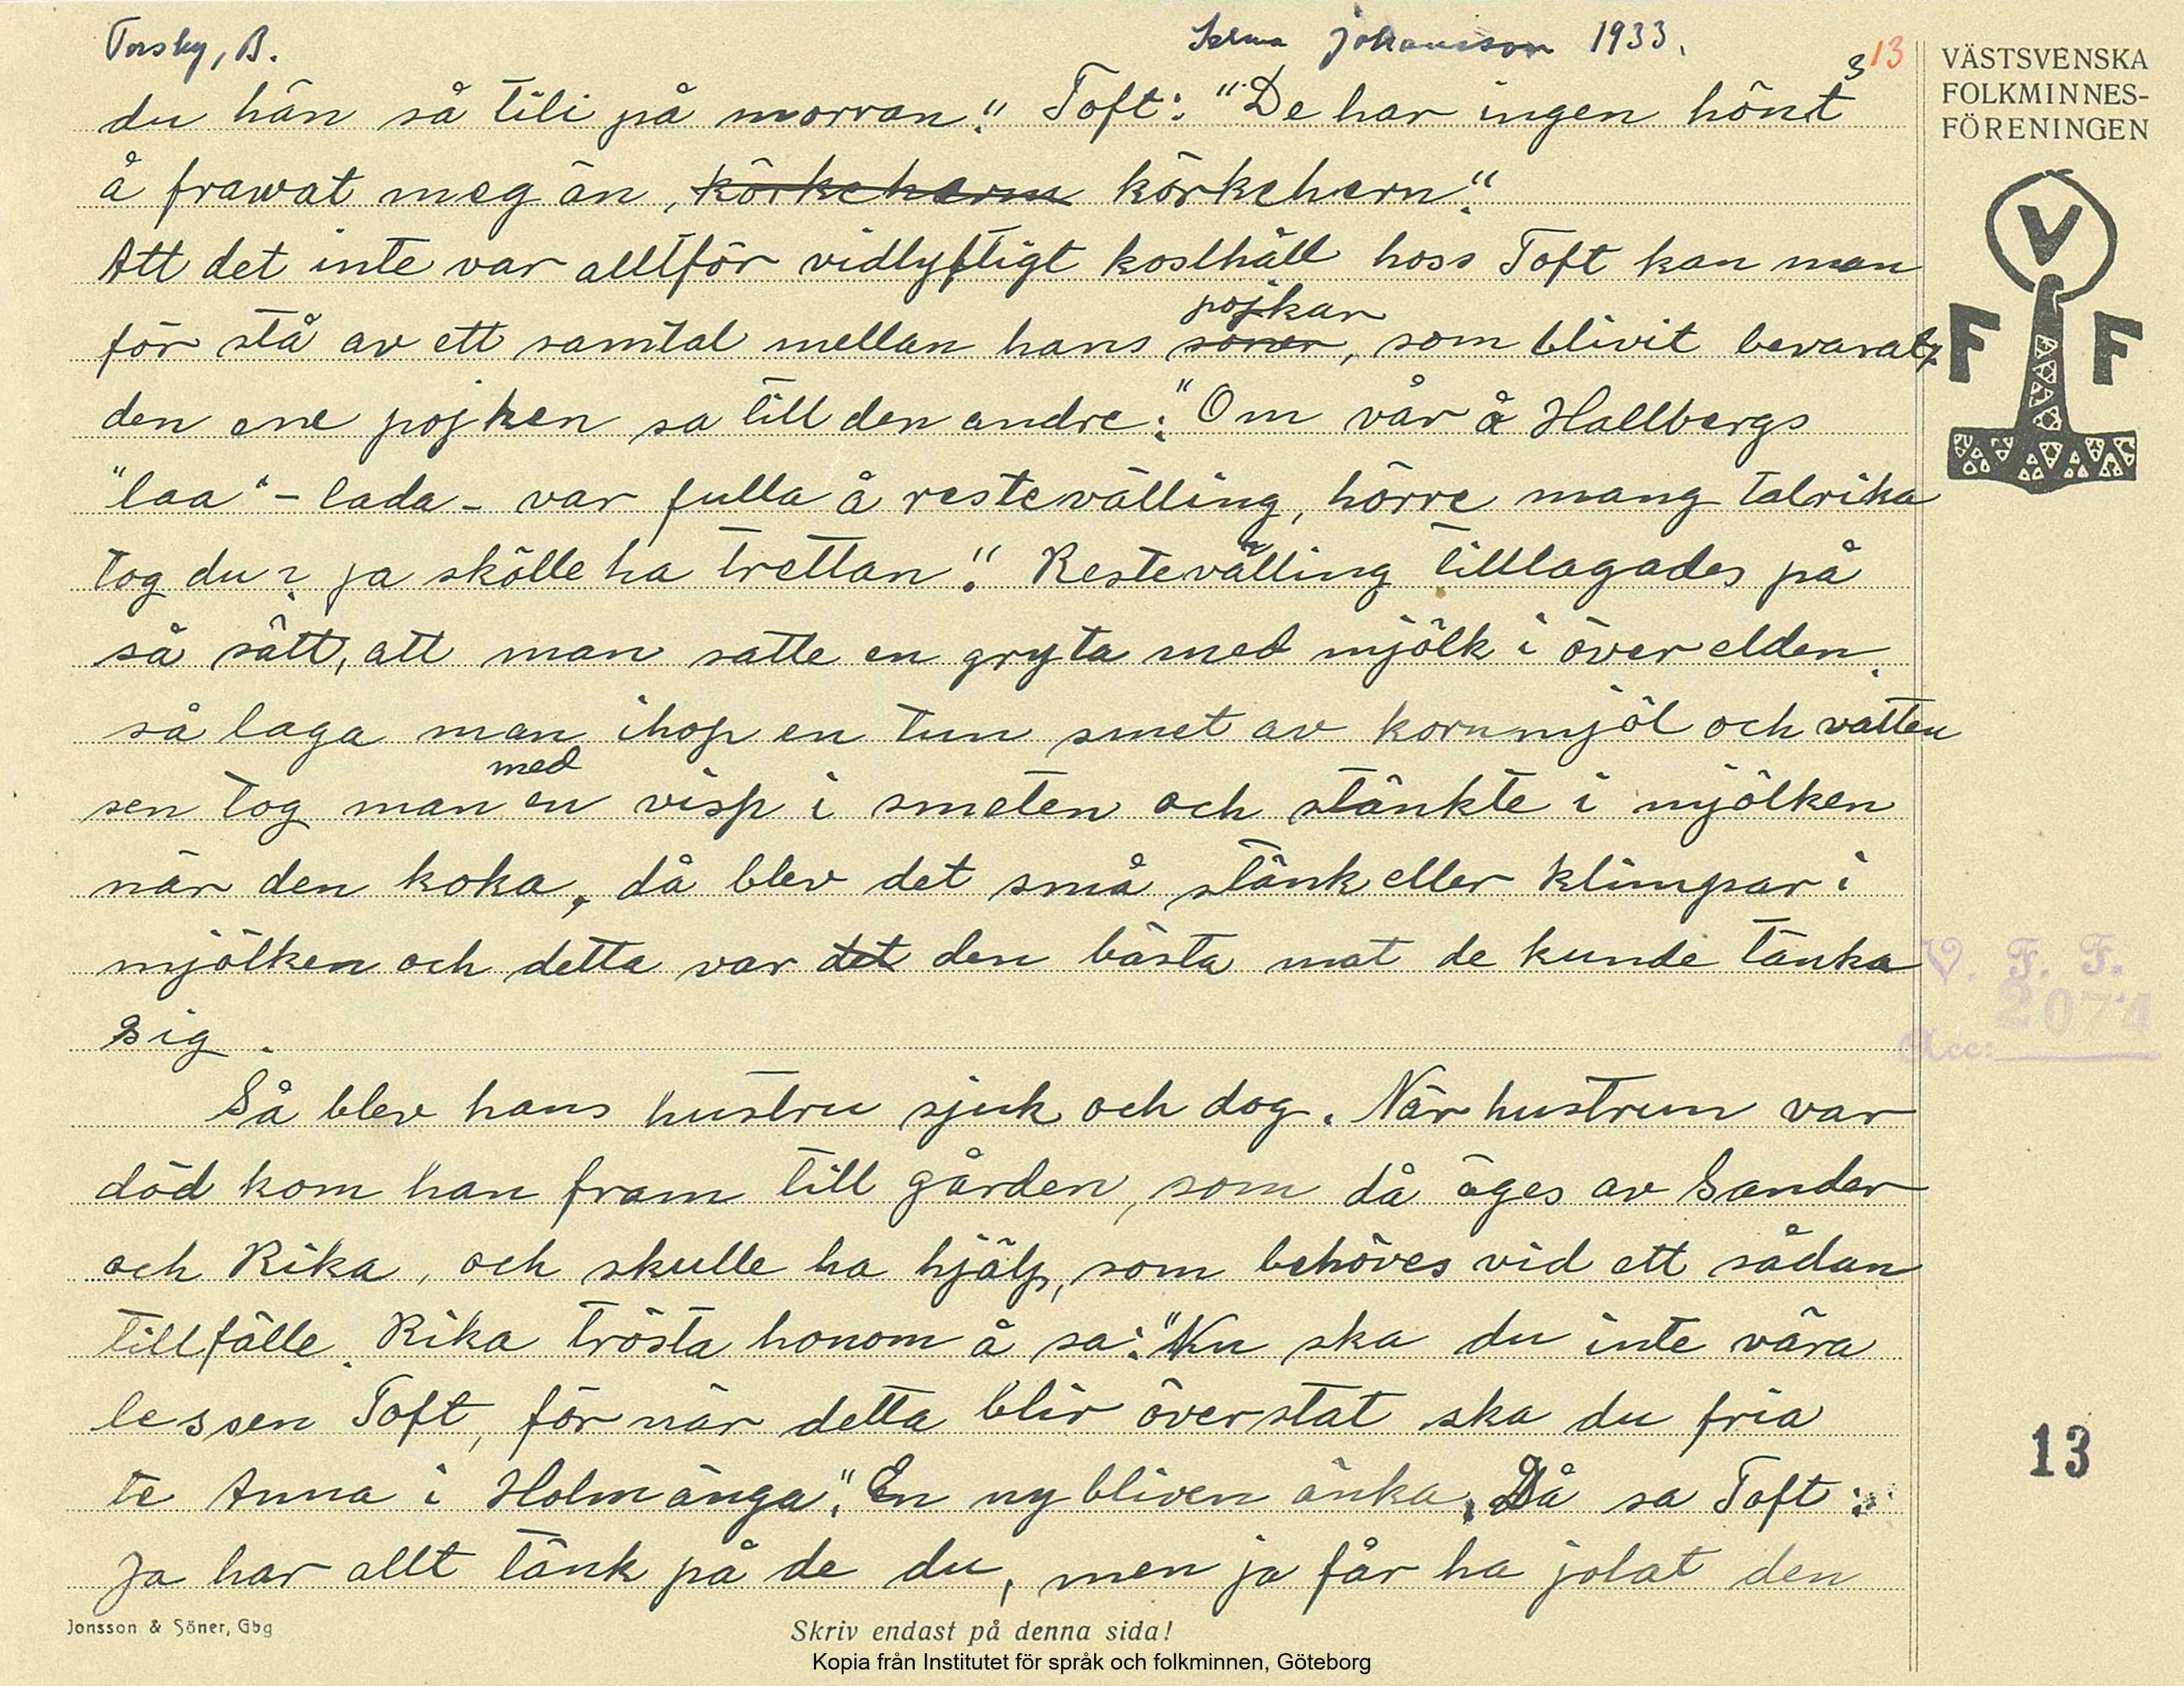 Torsby, B.
Selma Johansson 1933.
3 13
VÄSTSVENSKA
FOLKMINNES-
FÖRENINGEN
V
F F
du hän så tili på morran." Toft: "De har ingen hönt
å frawat meg än, körkehern körkehern."
Att det inte var alltför vidlyftigt kosthåll hoss Toft kan man
för stå av ett samtal mellan hans söner pojkar, som blivit bevarat,
den ene pojken sa till den andre: "Om vår å Hallbergs
"laa" - lada - var fulla å restevälling, hörre mang talrika
tog du? ja skölle ha trettan." Restevälling tilllagades på
så sätt, att man satte en gryta med mjölk i över elden.
så laga man ihop en tun smet av kornmjöl och vatten
sen tog man med en visp i smeten och stänkte i mjölken
när den koka, då blev det små stänk eller klimpar i
mjölken och detta var det den bästa mat de kunde tänka
sig.
Så blev hans hustru sjuk och dog. När hustrun var
död kom han fram till gården, som då äges av Sander
och Rika, och skulle ha hjälp, som behöves vid ett sådan
tillfälle. Rika trösta honom å sa: "Nu ska du inte vära
lessen Toft, för när detta blir överstat ska du fria
te Anna i Holmänga." En nybliven änka. Då sa Toft:
Ja har allt tänk på de du, men ja får ha jolat den
V. F. F.
2071
Acc:
13
Jonsson & Söner, Gbg
Skriv endast på denna sida!
Kopia från Institutet för språk och folkminnen, Göteborg